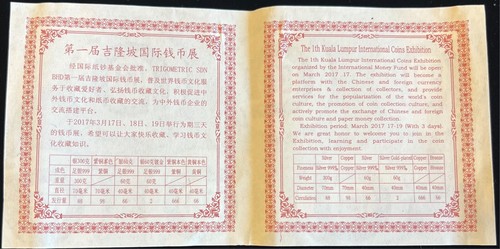 第一届吉隆坡国际钱币展
经国际纸钞基金会批准，TRIGOMETRIC SDN
BHD第一届吉隆坡国际钱币展，普及世界钱币文化服
务于收藏爱好者，弘扬钱币收藏文化，积极促进中
外钱币文化和纸币收藏的交流，为中外钱币企业的
交流搭建平台。
于2017年3月17日、18日、19日举行为期三天
的钱币展，希望可以让大家快乐收藏，学习钱币文
化收藏知识。
成色 足银999 紫铜 足银999
重量 300克 60克 60克
直径 70毫米 70毫米 40毫米 40毫米 40毫米 40毫米
发行量 68 98 66 2 666 68
The 1th Kuala Lumpur International Coins Exhibition
The 1th Kuala Lumpur International Coins Exhibition
organized by the International Money Fund will be open
on March 2017 17. The exhibition will become a
platform with the Chinese and foreign currency
enterprises & collection of collectors, and provide
services for the popularization of the world's coin
culture, the promotion of coin collection culture, and
actively promote the exchange of Chinese and foreign
coin culture and paper money collection.
Exhibition period: March 2017 17-19 (With 3 days).
We are great honor to welcome you to join in the
Exhibition, learning and participate in the coin
collection with enjoyment.
Silver Copper Silver Silver Gold plated Copper Bronze
Fineness Silver 999‰ Copper Silver 999‰ Silver 999‰ Copper Bronze
Weight 300g 60g 60g
Diameter 70mm 70mm 40mm 40mm 40mm 40mm
Circulation 68 98 66 2 666 68